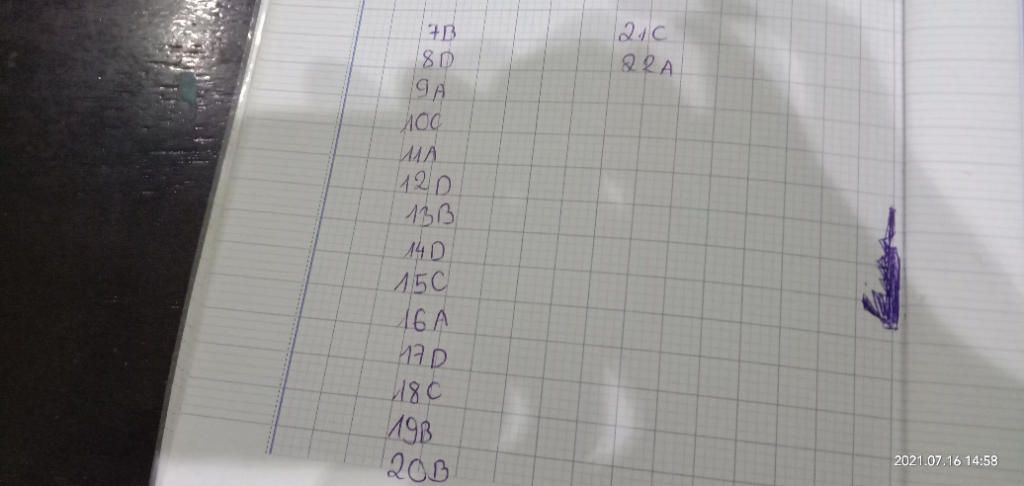 7B
8D
9A
10C
11A
12D
13B
14D
15C
16A
17D
18C
19B
20B
21C
22A
2021.07.16 14:58